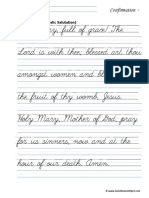 Confirmation
lic Salutation)
y, full of grace! The
Lord is with thee; blessed art thou
amongst women and bl
the fruit of thy womb, Jesus.
Holy Mary, Mother of God, pray
for us sinners, now and at the
hour of our death. Amen.